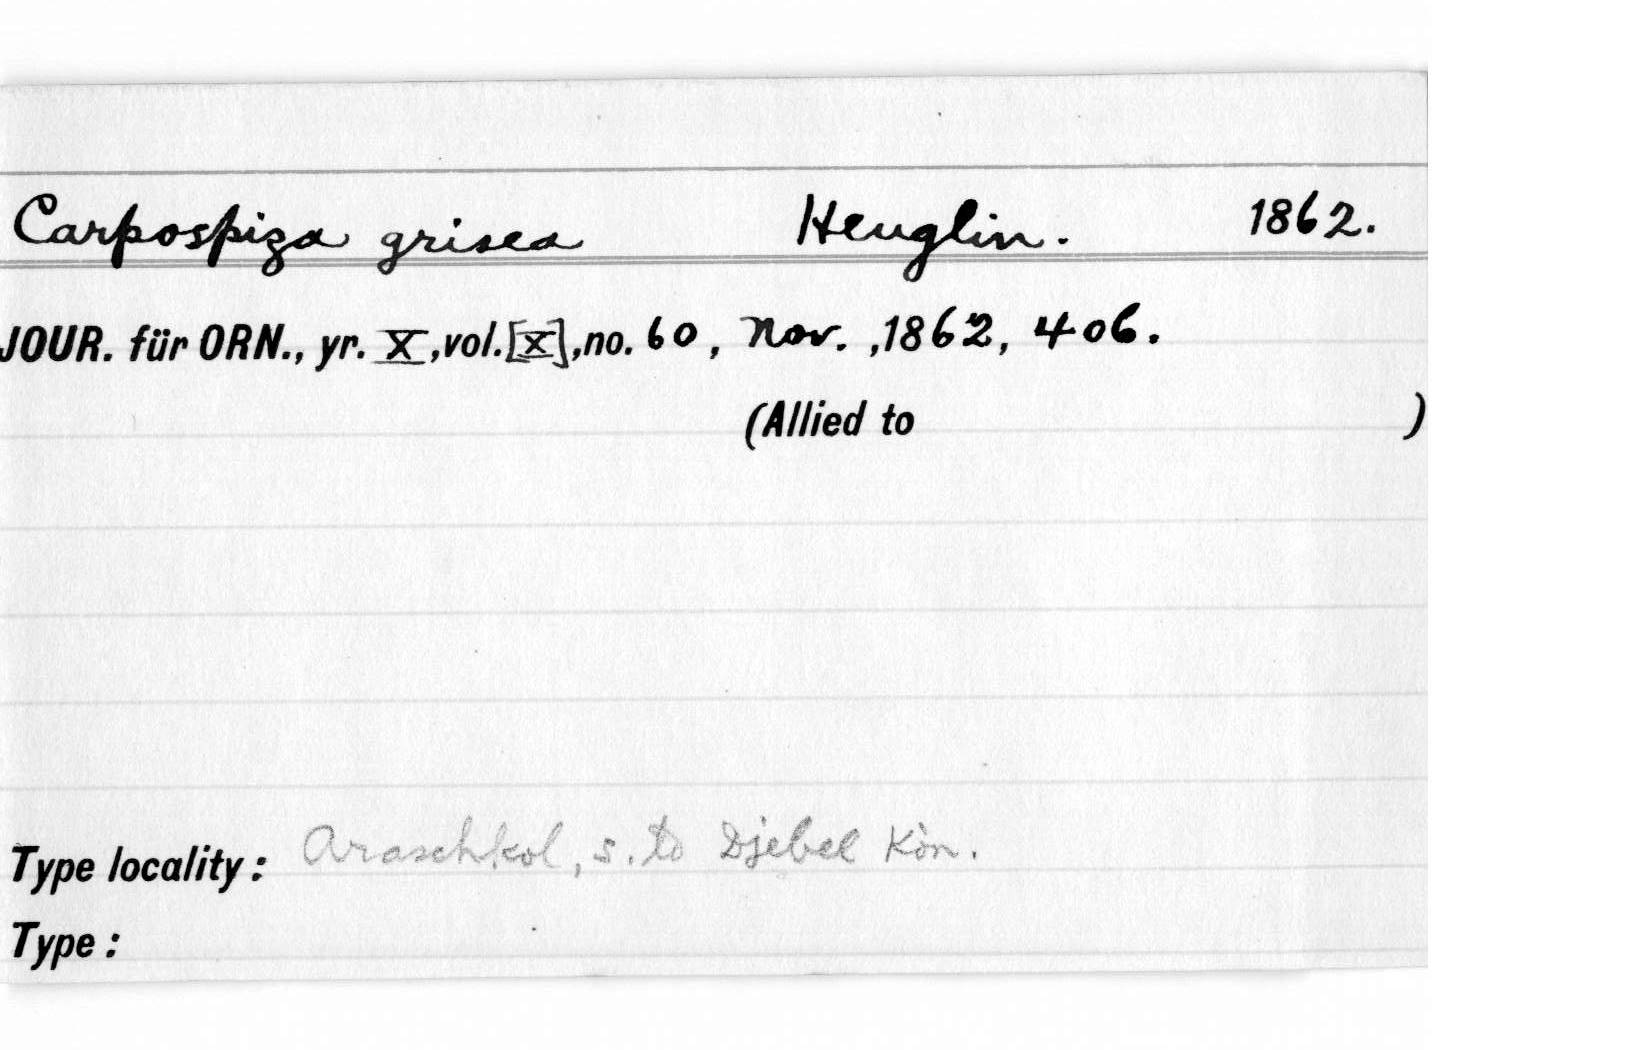 Carpospiza grisea Heuglin. 1862.
JOUR. für ORN., yr. X, vol. [X], no. 60, Nov. , 1862, 406.
(Allied to )
Type locality : Araschkol, s. to Djebel Kòn.
Type :